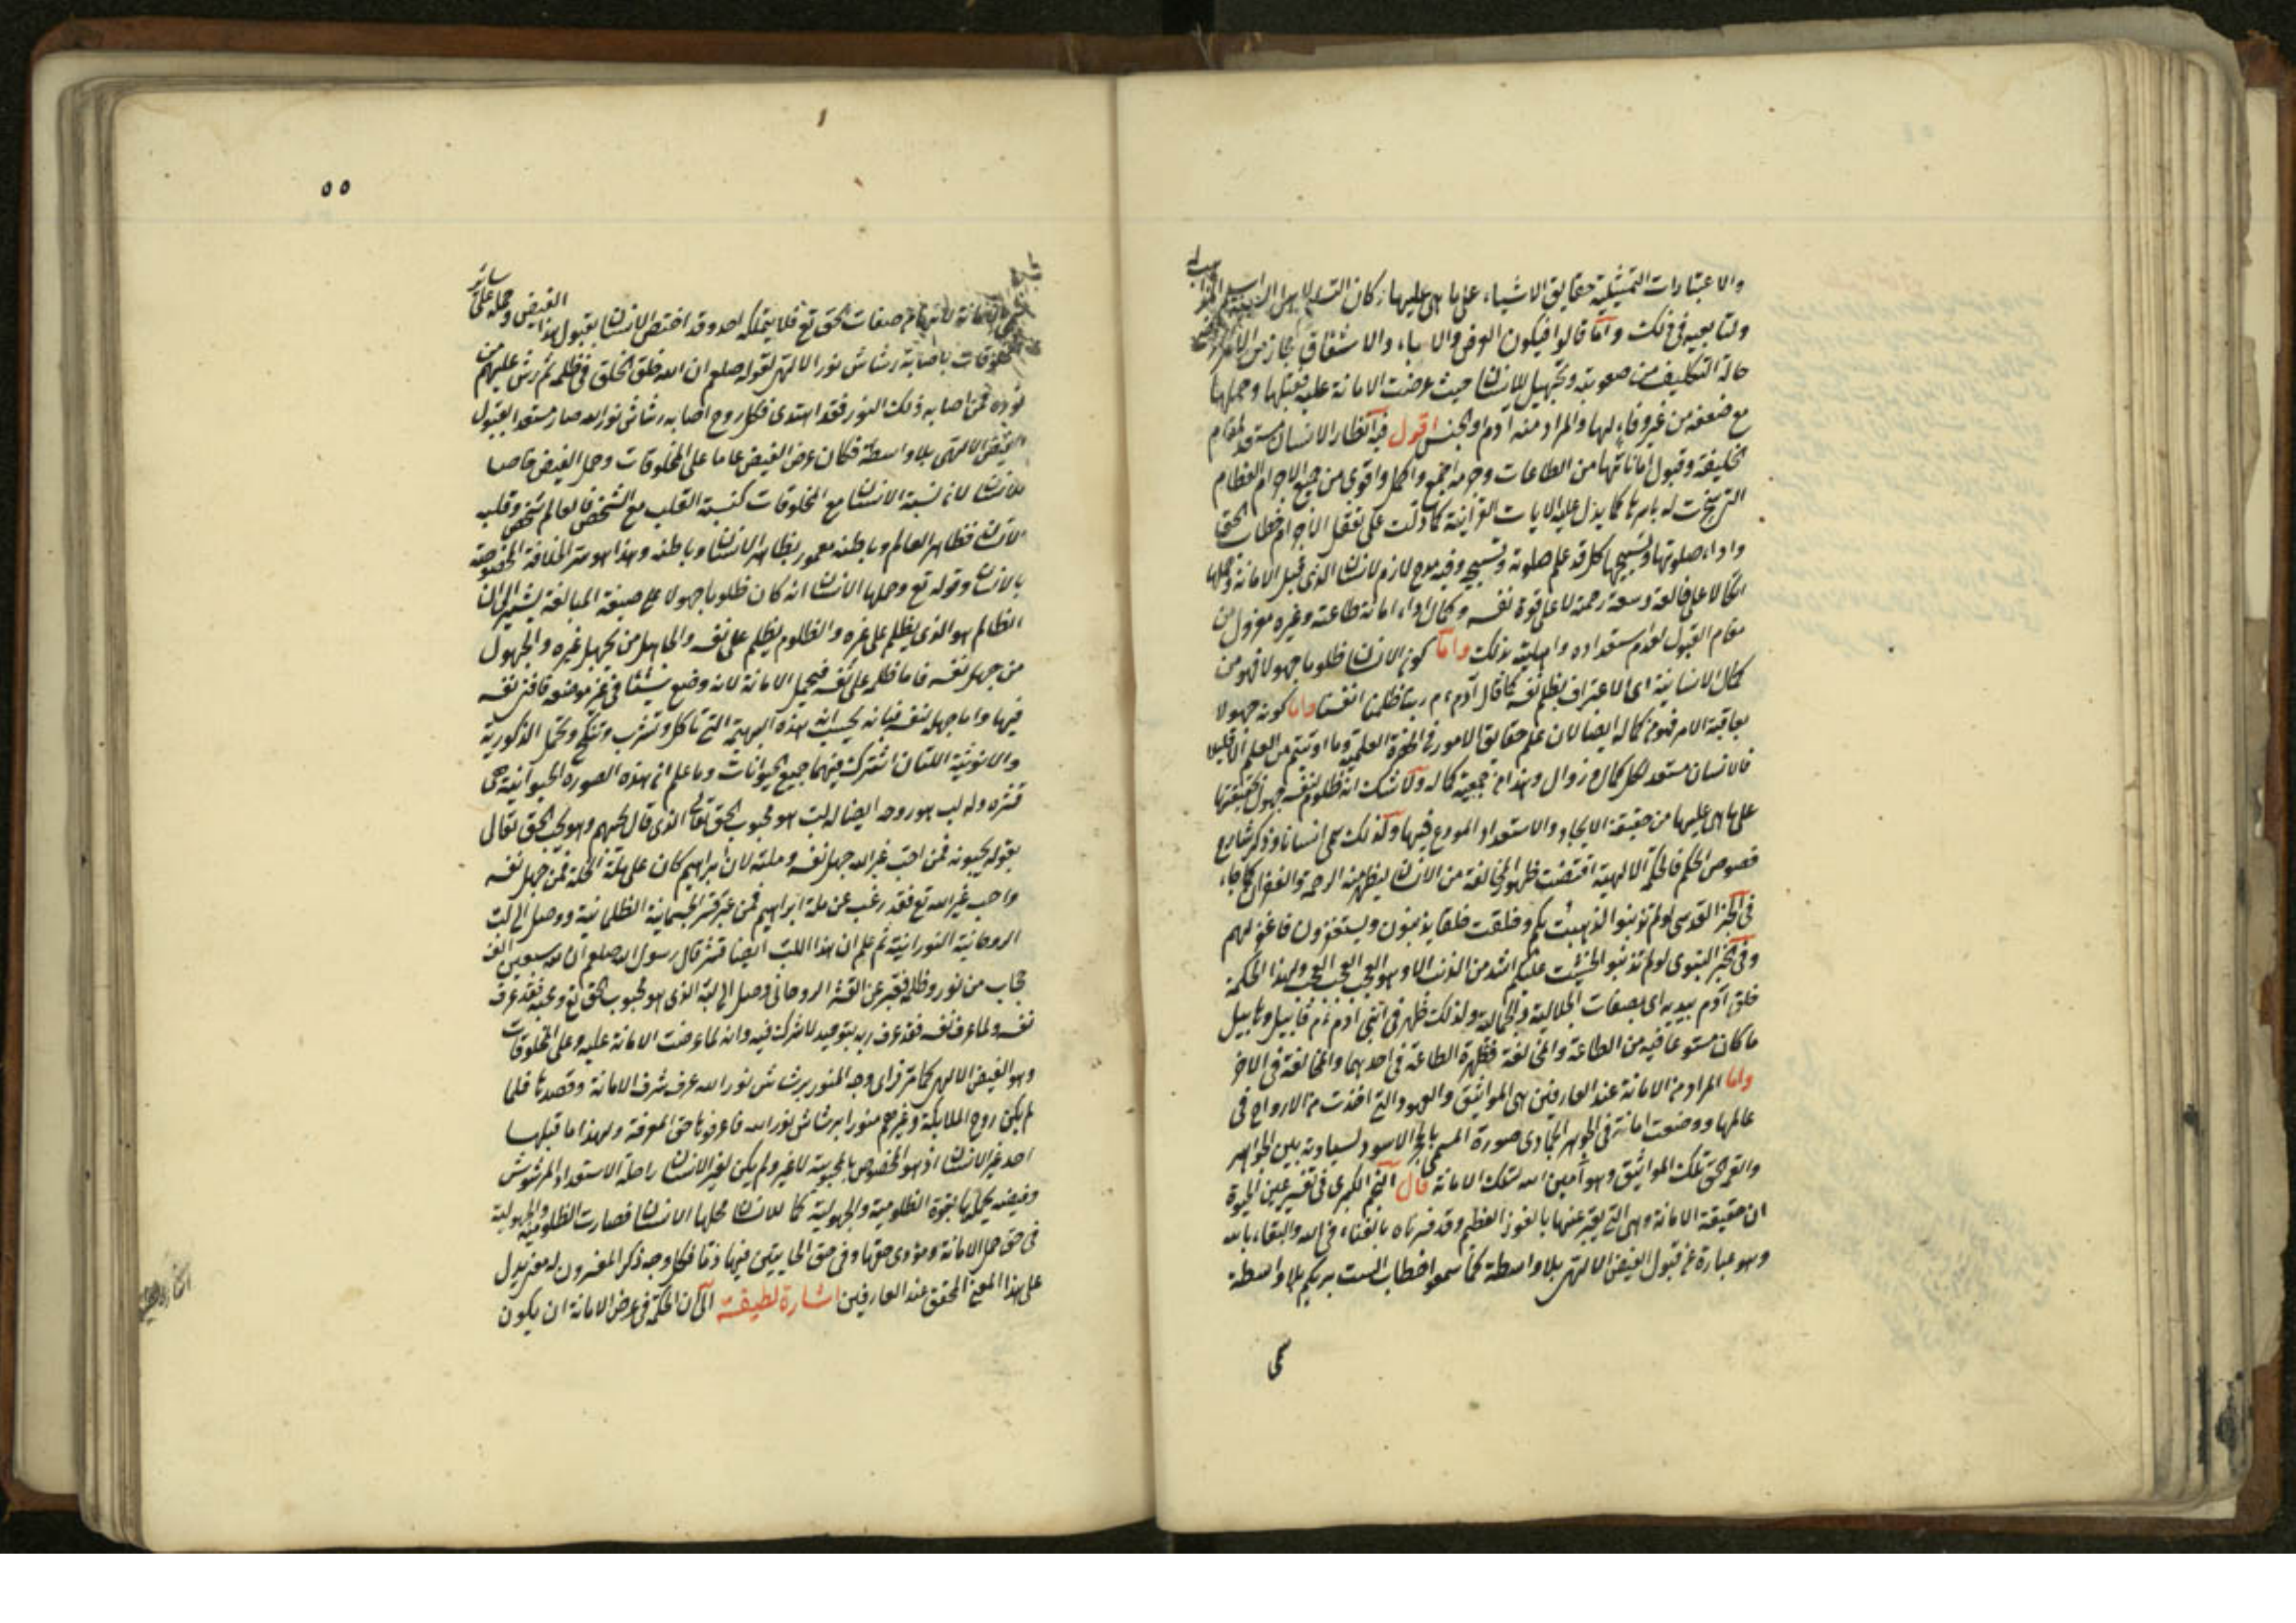 والاعتبارات التمثيلية حقايق الاشياء على ما هى عليها
ولتابعيه فى ذلك واما قالوا فيكون العرض والاباء والاشفاق مجاز من
حالة التكليف من صعوبته وتجهيل للانسان حيث عرضت الامانة عليه فقبلها وحملها
مع ضعفه من غير وفاء لها والمراد منه آدم او الجنس اقول فيه انظار الانسان مستعد لمقام
الخليفة وقبول اماناتها من الطاعات وجرمه اجمع واكمل واقوى من جميع الاجرام العظام
التى سخرت له باسرها كما يدل عليه الايات القرآنية كما دلت على تعقل الاجرام خطاب الحق
واداء صلوتها وتسبيحها كل قد علم صلوته وتسبيحه وفيه مدح لازم لانسان الذى قبل الامانة وحملها
اتكالا على خالقه وسعة رحمته لا على قوة نفسه وكمال اداء امانة طاعته وغيره معزول من
مقام القبول لعدم استعداده واهليته بذلك واما كون الانسان ظلوما جهولا فهو من
كمال الانسانية اى الاعتراف بظلم نفسه كما قال آدم عم ربنا ظلمنا انفسنا واما كونه جهولا
بعاقبة الامر فهو من كماله ايضا لان علم حقايق الامور فى الحضرة العلمية وما اوتيتم من العلم الا قليلا
فالانسان مستعد لكل كمال وزوال وهذا من جمعية كماله ولا شك انه ظلوم لنفسه جهول بحقيقتها
على ما هى عليها من حقيقة الايجاد والاستعداد المودع فيها ولذلك سمى انسانا وذكر شارح
فصوص الحكم فالحكمة الالهية اقتضت ظهور المخالفة من الانسان ليظهر منه الرحمة والغفران كما جاء
فى الخبر القدسى لو لم تذنبوا لذهبت بكم وخلقت خلقا يذنبون ويستغفرون فاغفر لهم
وفى الخبر النبوى لو لم تذنبوا لخشيت عليكم اشد من الذنب الا وهو العجب العجب العجب ولهذا الحكمة
خلق آدم بيديه اى بصفات الجلالية والجمالية ولذلك ظهر فى ابنى آدم عم قابيل وهابيل
ما كان مستوعا فيه من الطاعة والمخالفة فظهرة الطاعة فى احدهما والمخالفة فى الاخر
واما المراد من الامانة عند العارفين هى المواثيق والعهود التى اخذت من الارواح فى
عالمها ووضعت امانة فى الجوهر الجمادى صورة المسمى بالحجر الاسود لسيادته بين الجواهر
والقم الحق تلك المواثيق وهو امين الله بتلك الامانة قال النجم الكبرى فى تفسير عين الحيوة
ان حقيقة الامانة وهى التى يعبر عنها بالفوز العظيم وقد فسرناه بالفناء فى الله والبقاء بالله
وهو عبارة عن قبول الفيض الالهى بلا واسطة كما سمعوا خطاب الست بربكم بلا واسطة
٥٥
صفات الحق تع فلا يتملكه احد وقد اختص الانسان بقبول هذا الفيض وحمله على ساير
المخلوقات باصابة رشاش نور الالهى لقوله صلعم ان الله خلق الخلق فى ظلمة ثم رش عليهم من
نوره فمن اصابه ذلك النور فقد اهتدى فكل روح اصابه رشاش نور الله صار مستعدا لقبول
الفيض الالهى بلا واسطة فكان عرض الفيض عاما على المخلوقات وحمل الفيض خاصا
للانسان لان نسبة الانسان مع المخلوقات كنسبة القلب مع الشخص فالعالم شخص وقلبه
الانسان فظاهر العالم وباطنه معمور بظاهر الانسان وباطنه وهذا هو سر الخلافة المخصوصة
بالانسان وقوله تع وحملها الانسان انه كان ظلوما جهولا على صيغة المبالغة يشير الى ان
الظالم هو الذى يظلم على غيره والظلوم يظلم على نفسه والجاهل من يجهل غيره والجهول
من جهل نفسه فاما ظلمه على نفسه فيحمل الامانة لانه وضع شيئا فى غير موضعه فافنى نفسه
فيها واما جهله نفسه فبانه يحسب انه هذه البهيمة التى تاكل وتشرب وتنكح وتحمل الذكورية
والانوثية اللتان اشتركت فيهما جميع الحيوانات وما علم ان هذه الصورة الحيوانية هى
قشره وله لب هو روحه ايضا له لب هو محبوب الحق تعالى الذى قال يحبهم وهو محب الحق تعالى
بقوله يحبونه فمن احب غير الله جهل نفسه وملته لان ابراهيم كان على ملة الخلة فمن جهل نفسه
واحب غير الله تع فقد رغب عن ملة ابراهيم فمن عبر قشر الجسمانية الظلمانية ووصل الى لب
الروحانية النورانية ثم علم ان هذا اللب ايضا قشر قال رسول الله صلعم ان لله سبعين الف
حجاب من نور وظلمة فعبر عن القشر الروحانى وصل الى لبه الذى هو محبوب الحق تع ومحبه فقد عرف
نفسه ولما عرف نفسه فقد عرف ربه بتوحيد لا شرك فيه وانه لما عرضت الامانة عليه وعلى المخلوقات
وهو الفيض الالهى كما مر فراى وجه المنور برشاش نور الله عرف شرف الامانة وقصدها فلما
لم يكن روح الملايكة وغيرهم منورا برشاش نور الله ما عرفوها حق المعرفة ولهذا ما قبلها
احد غير الانسان اذ هو المخصوص بالمحبوبية لا غير ولم يكن لغير الانسان راحلة الاستعداد المرشوش
وفيضه يحملها بقوة الظلومية والجهولية كما للانسان فحملها الانسان فصارت الظلومية والجهولية
فى حق حمل الامانة ومؤدى حقها وفى حق الخاينين فيها ذما فكل وجه ذكر المفسرون له معنى يدل
على هذا المعنى المحقق عند العارفين اشارة لطيفة الى ان الحكمة فى عرض الامانة ان يكون